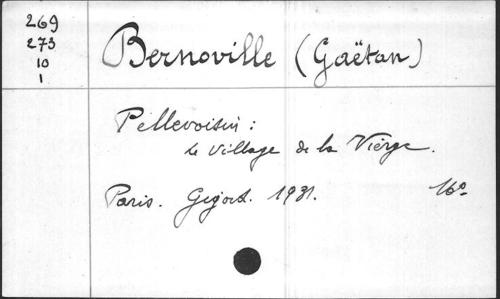 269
273
10
1
Bernoville (Gaëtan)
Pellevoisin :
le village de la Vierge.
Paris. Gigord. 1931. 16°